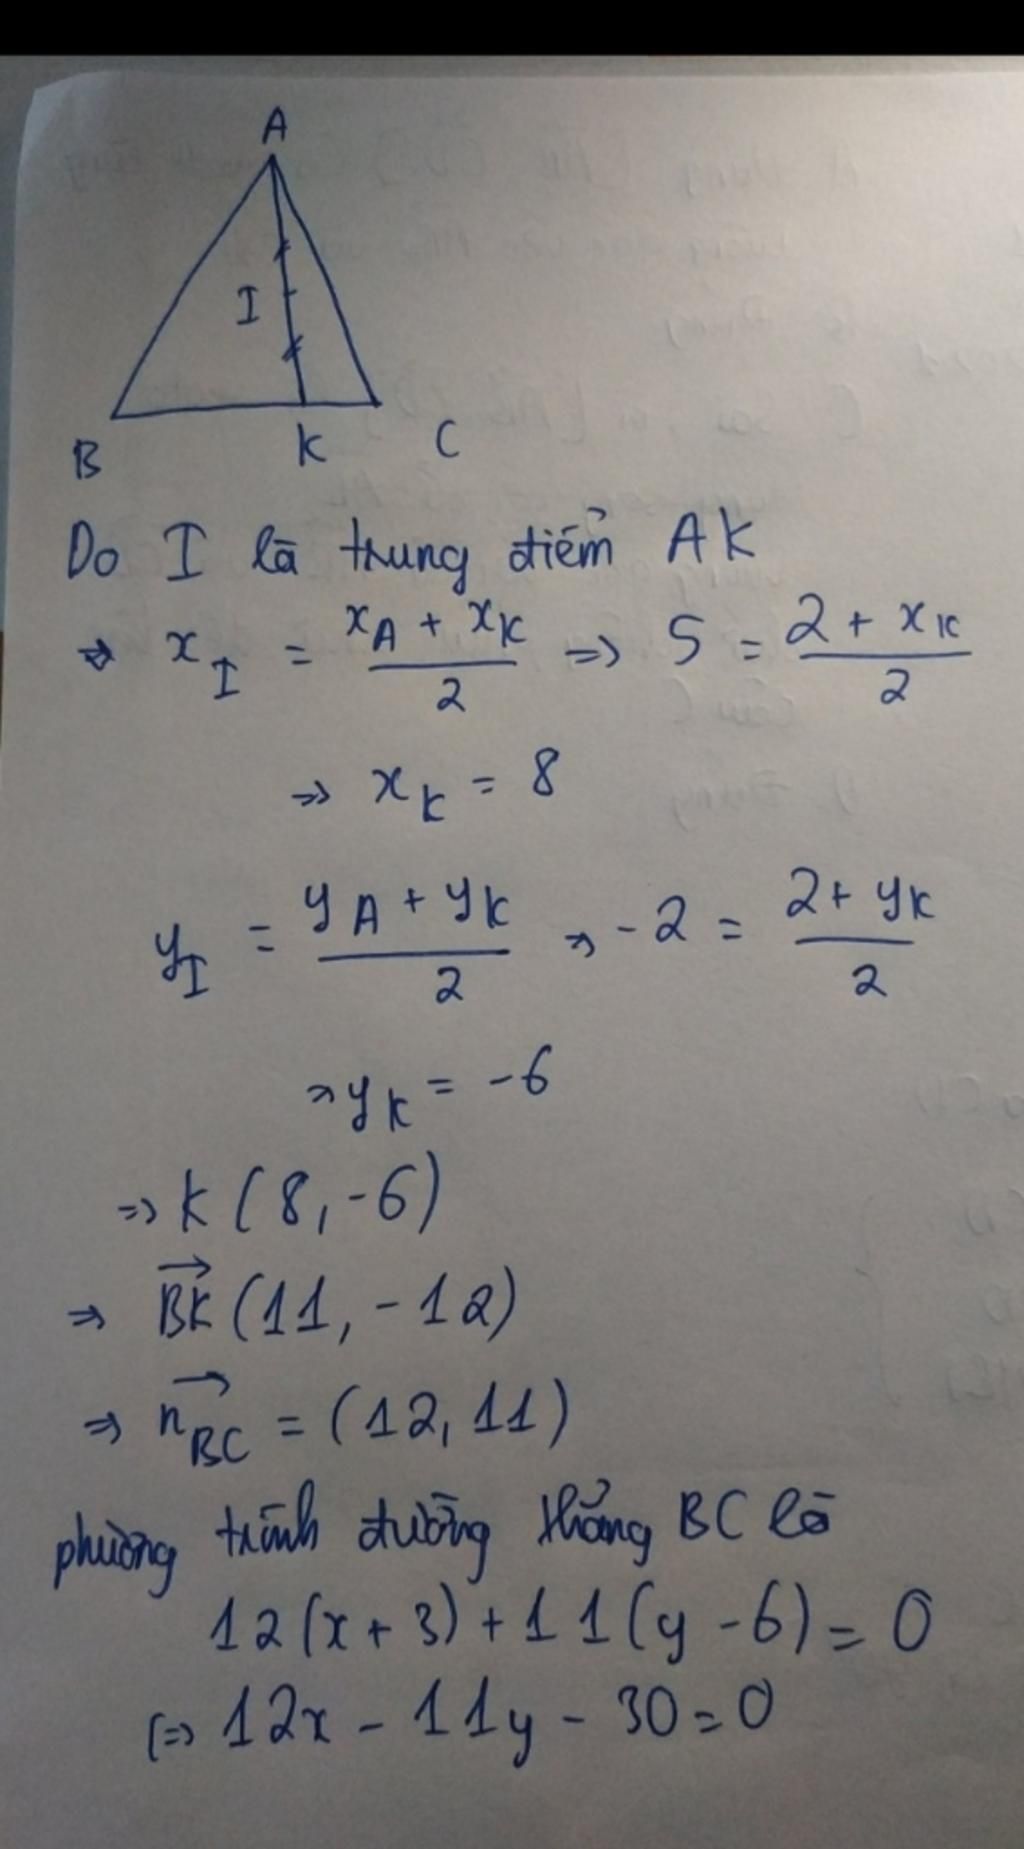 A
I
B K C
Do I là trung điểm AK
=> x_I = (x_A + x_K)/2 => 5 = (2 + x_K)/2
=> x_K = 8
y_I = (y_A + y_K)/2 => -2 = (2 + y_K)/2
=> y_K = -6
=> K (8, -6)
=> \overrightarrow{BK} (11, -12)
=> \overrightarrow{n_{BC}} = (12, 11)
phương trình đường thẳng BC là
12(x + 3) + 11(y - 6) = 0
(=> 12x - 11y - 30 = 0